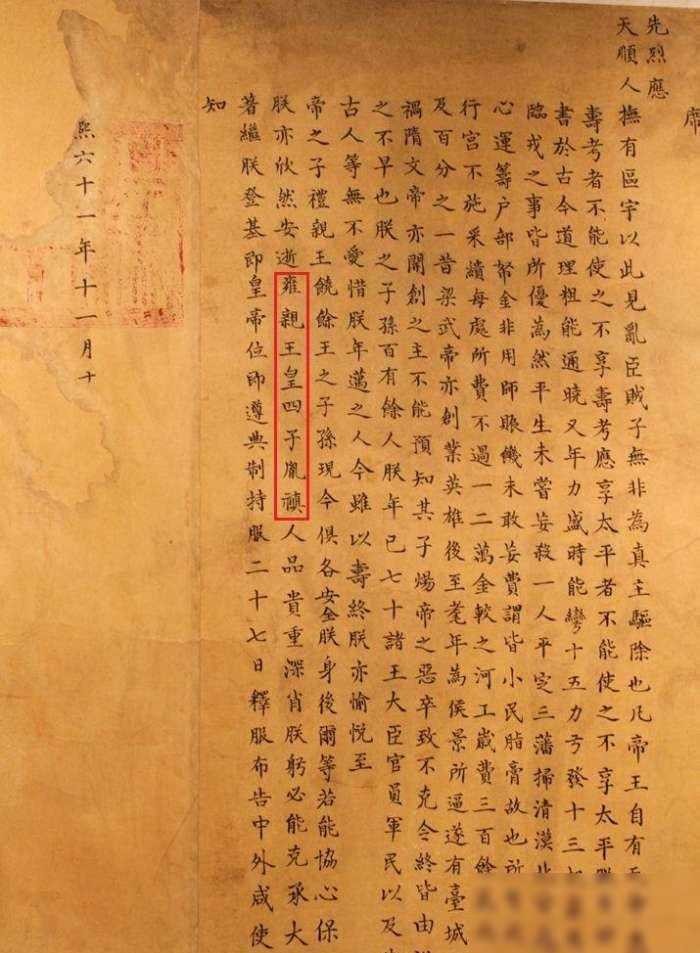 席
先烈應
天順人撫有區宇以此見亂臣賊子無非為真主驅除也凡帝王自有天
壽考者不能使之不享壽考應享太平者不能使之不享太平朕
書於古今道理粗能通曉又年力盛時能彎十五力弓發十三
臨戎之事皆所優為然平生未嘗妄殺一人平定三藩掃清漠北
心運籌户部帑金非用師賑饑未敢妄費謂皆小民脂膏故也所
行宮不施采繢每處所費不過一二萬金較之河工歲費三百餘
及百分之一昔梁武帝亦創業英雄後至耄年為侯景所逼遂有臺城
禍隋文帝亦開創之主不能預知其子煬帝之惡卒致不克令終皆由
之不早也朕之子孫百有餘人朕年已七十諸王大臣官員軍民以及
古人等無不愛惜朕年邁之人今雖以壽終朕亦愉悦至
帝之子禮親王饒餘王之子孫現今俱各安全朕身後爾等若能協心保
朕亦欣然安逝雍親王皇四子胤禛人品貴重深肖朕躬必能克承大
著繼朕登基即皇帝位即遵典制持服二十七日釋服布告中外咸使
知
熙六十一年十一月十